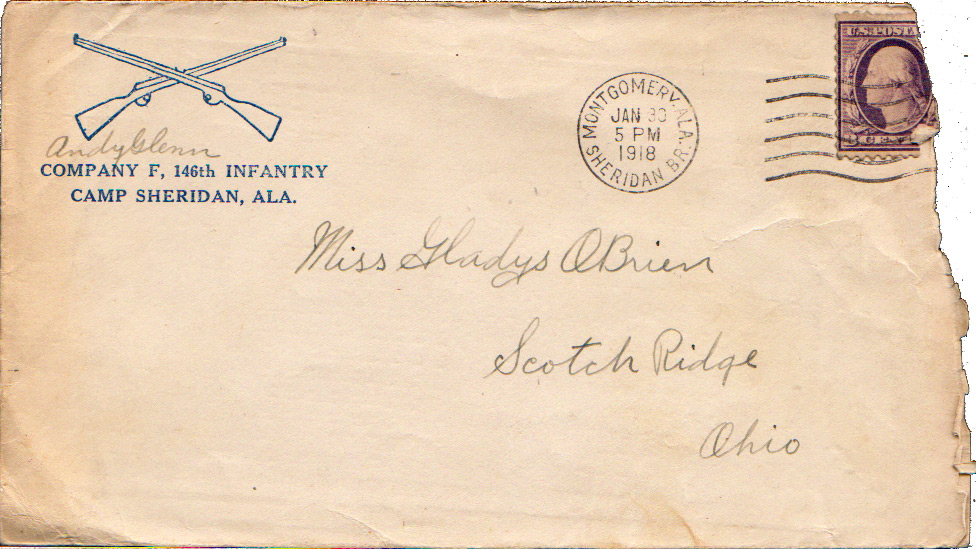 Andy Glenn
COMPANY F, 146th INFANTRY
CAMP SHERIDAN, ALA.
MONTGOMERY, ALA.
JAN 30
5 PM
1918
SHERIDAN BR.
U.S. POSTA
3 CENT
Miss Gladys O'Brien
Scotch Ridge
Ohio